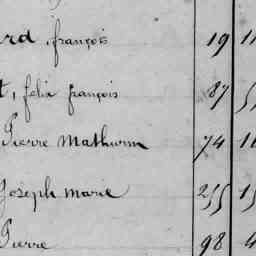 ard, françois 19 11
t, felix françois 87
Pierre Mathurin 74 1
Joseph marie 255 15
Pierre 98 4